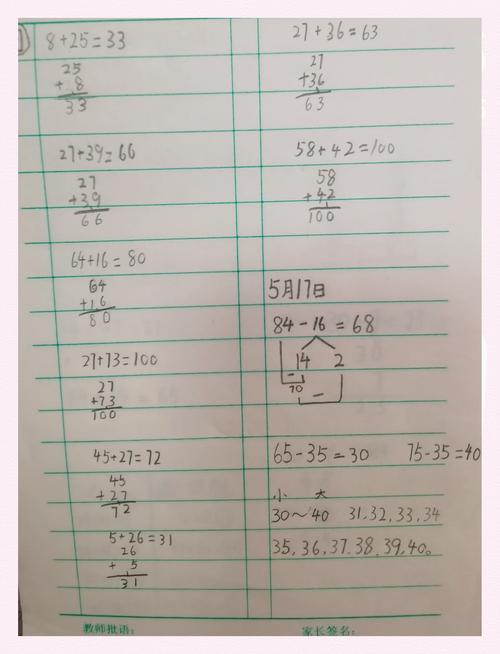 8+25=33
25
+ 8
33
27+39=66
27
+39
66
64+16=80
64
+16
80
27+73=100
27
+73
100
45+27=72
45
+27
72
5+26=31
26
+ 5
31
教师批语:
27+36=63
27
+36
63
58+42=100
58
+42
100
5月17日
84-16=68
14 2
-
70
-
65-35=30 75-35=40
小 大
30～40 31.32.33.34
35.36.37.38.39.40。
家长签名: